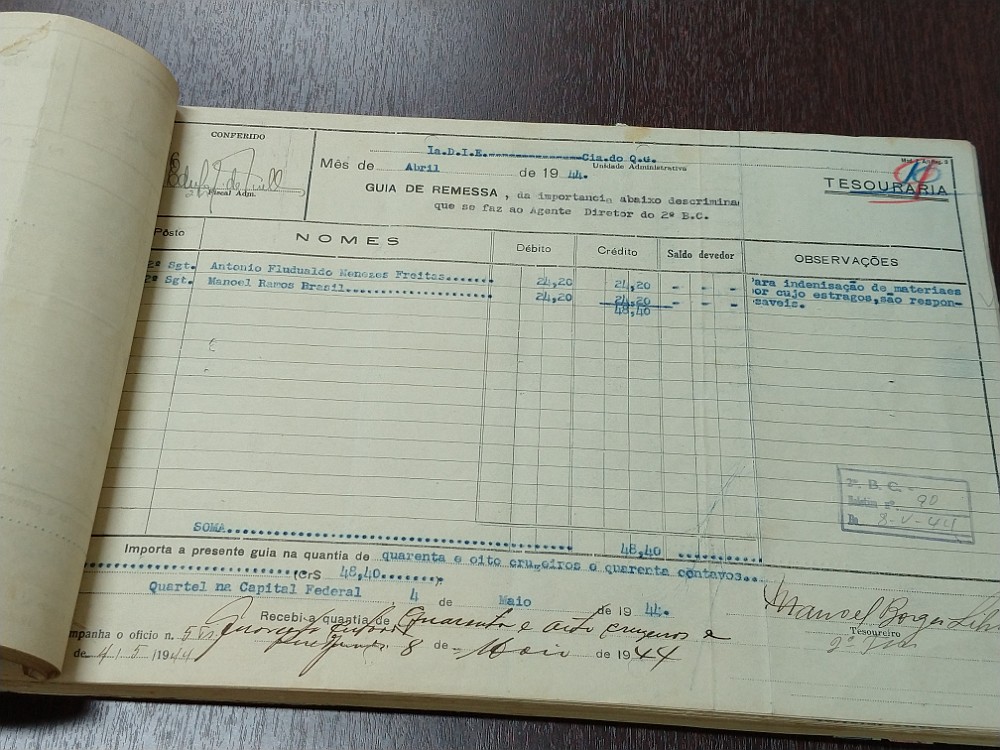 CONFERIDO
Fiscal Adm.
Ia.D.I.E.-------------Cia.do Q.G.
Unidade Administrativa
Mês de Abril de 1944.
TESOURARIA
GUIA DE REMESSA, da importancia abaixo descrimina
que se faz ao Agente Diretor do 2º B.C.
Pôsto NOMES Débito Crédito Saldo devedor OBSERVAÇÕES
2º Sgt. Antonio Fludualdo Menezes Freitas....... 24,20 24,20 - - - ara indenisação de materiaes
2º Sgt. Manoel Ramos Brasil..................... 24,20 24,20 - - - or cujo estragos,são respon-
48,40 saveis.
2º. B. C.
Boletim nº 90
De 8-V-44
SOMA.................................................. 48,40 ............
Importa a presente guia na quantia de quarenta e oito cruzeiros e quarenta centavos...
(Cr$ 48,40..........).
Quartel na Capital Federal, 4 de Maio de 1944.
Manoel Borges
Tesoureiro
Recebi a quantia de Quarenta e oito cruzeiros e
mpanha o oficio n. 5
8 de Maio de 1944
de 4/5/1944